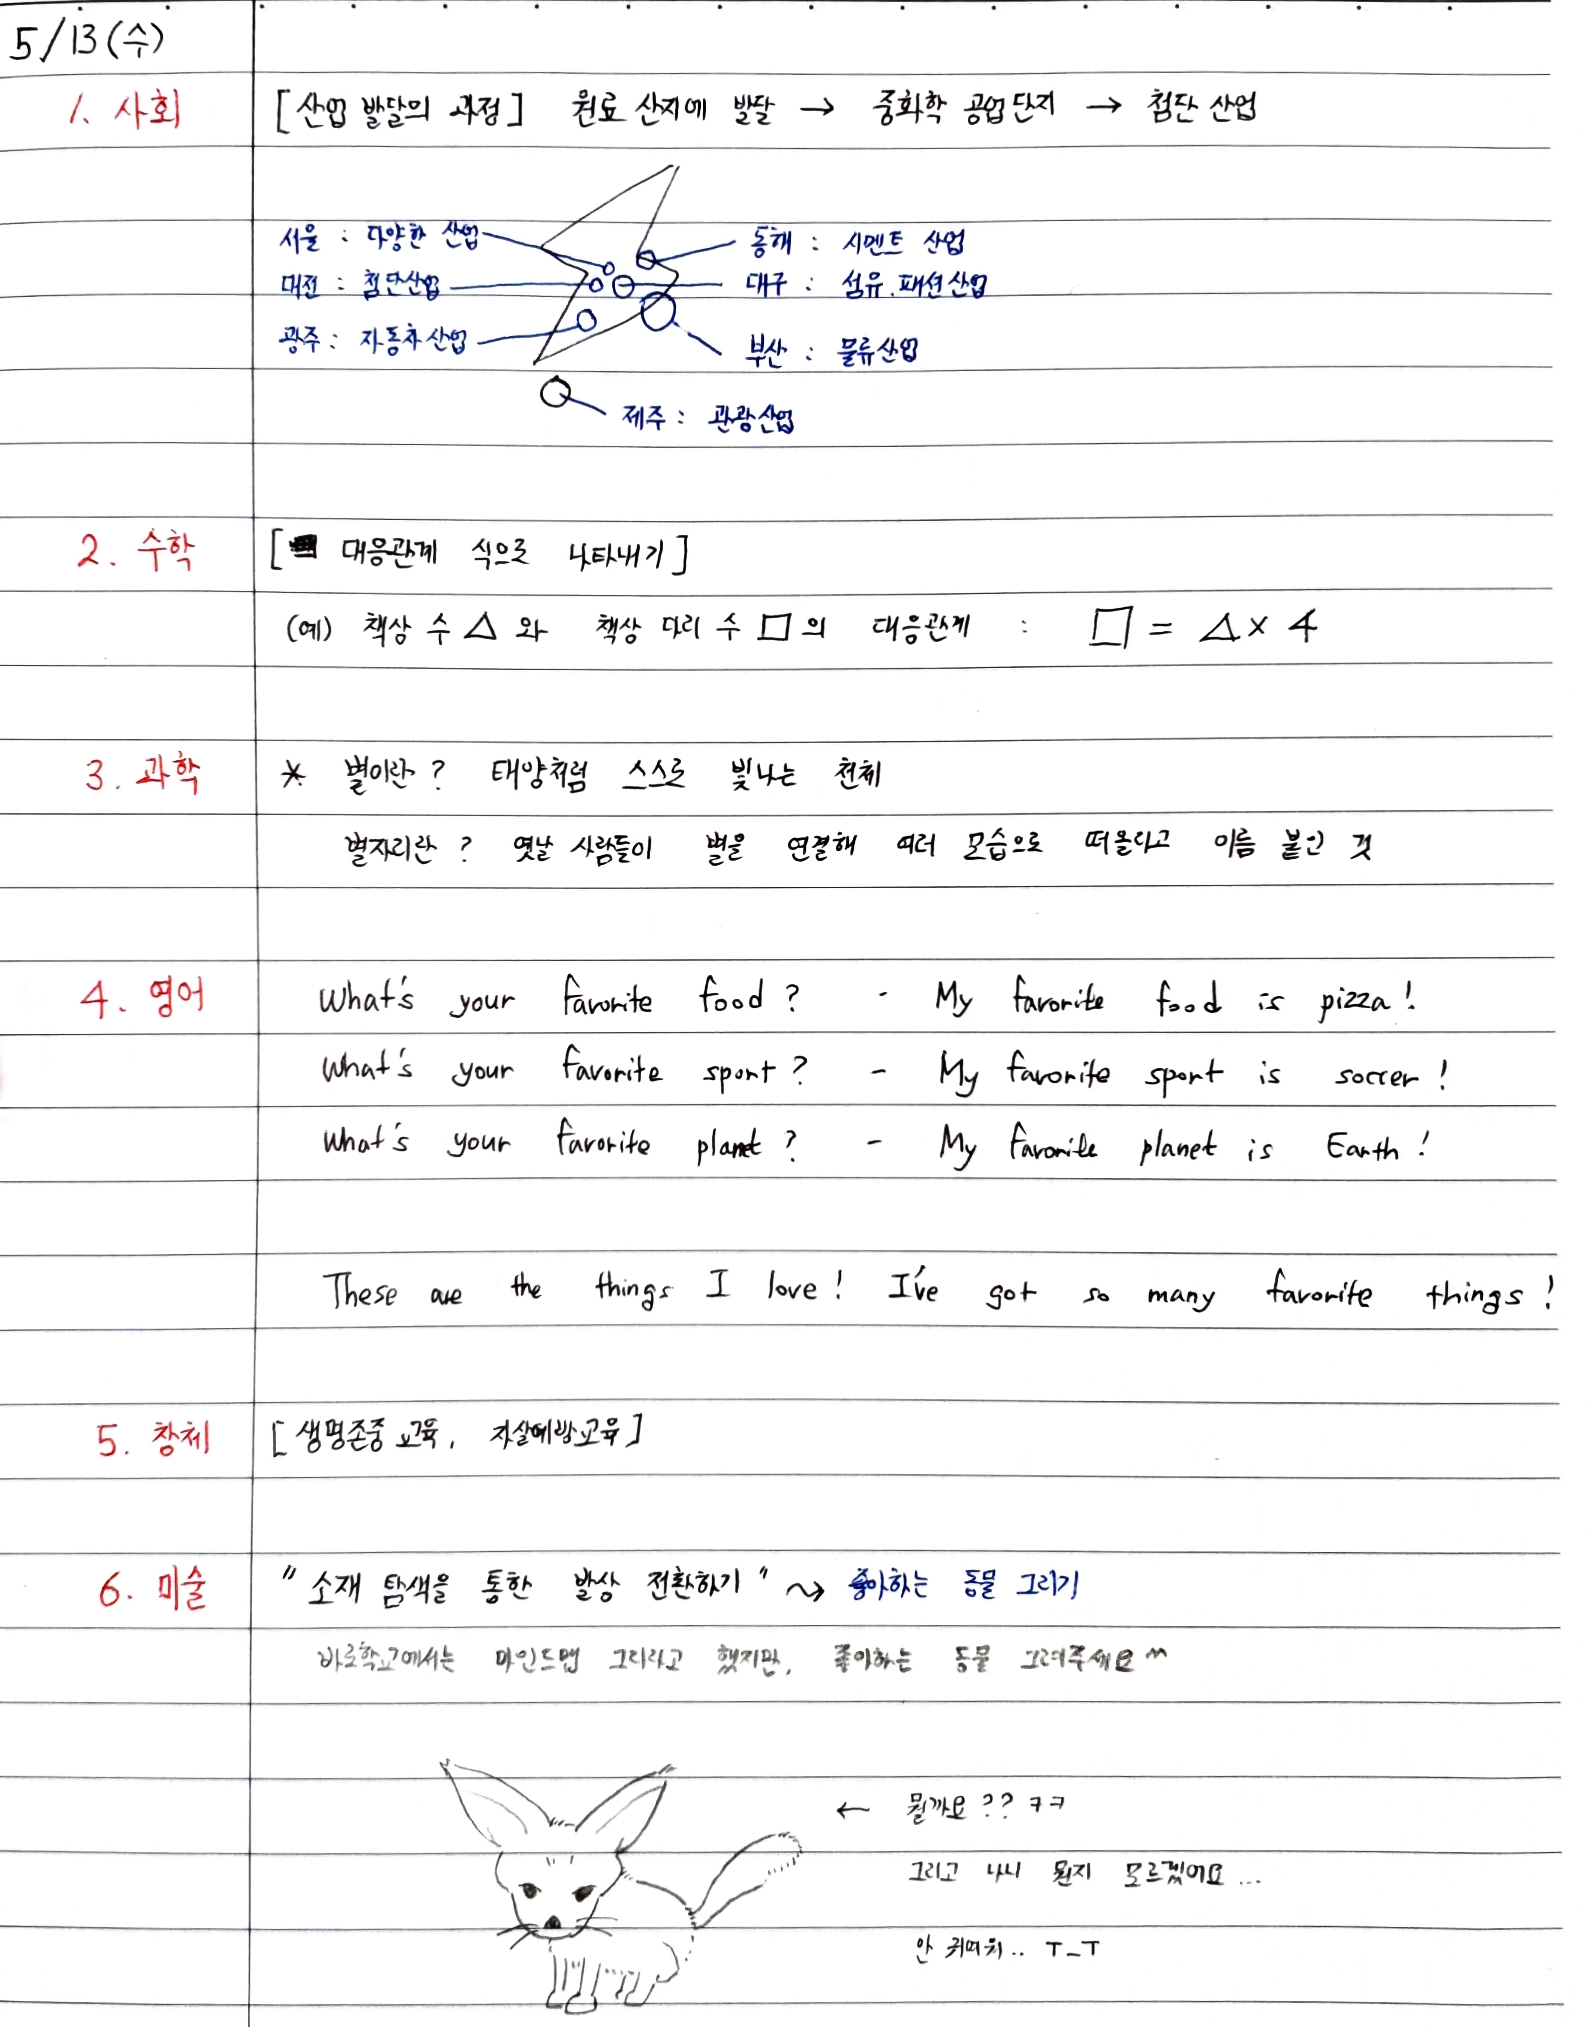 5/13(수)
1. 사회 [산업 발달의 과정] 원료 산지에 발달 → 중화학 공업단지 → 첨단 산업
서울 : 다양한 산업
동해 : 시멘트 산업
대전 : 첨단산업
대구 : 섬유.패션산업
광주 : 자동차산업
부산 : 물류산업
제주 : 관광산업
2. 수학 [대응관계 식으로 나타내기]
(예) 책상 수 △ 와 책상 다리 수 □ 의 대응관계 : □ = △ × 4
3. 과학 * 별이란? 태양처럼 스스로 빛나는 천체
별자리란? 옛날 사람들이 별을 연결해 여러 모습으로 떠올리고 이름 붙인 것
4. 영어 What's your favorite food? - My favorite food is pizza!
What's your favorite sport? - My favorite sport is soccer!
What's your favorite planet? - My favorite planet is Earth!
These are the things I love! I've got so many favorite things!
5. 창체 [생명존중교육, 자살예방교육]
6. 미술 "소재 탐색을 통한 발상 전환하기" ↝ 좋아하는 동물 그리기
바로학교에서는 마인드맵 그리라고 했지만, 좋아하는 동물 그려주세요^^
← 뭘까요?? ㅋㅋ
그리고 나니 뭔지 모르겠어요...
안 귀여워.. ㅜ_ㅜ